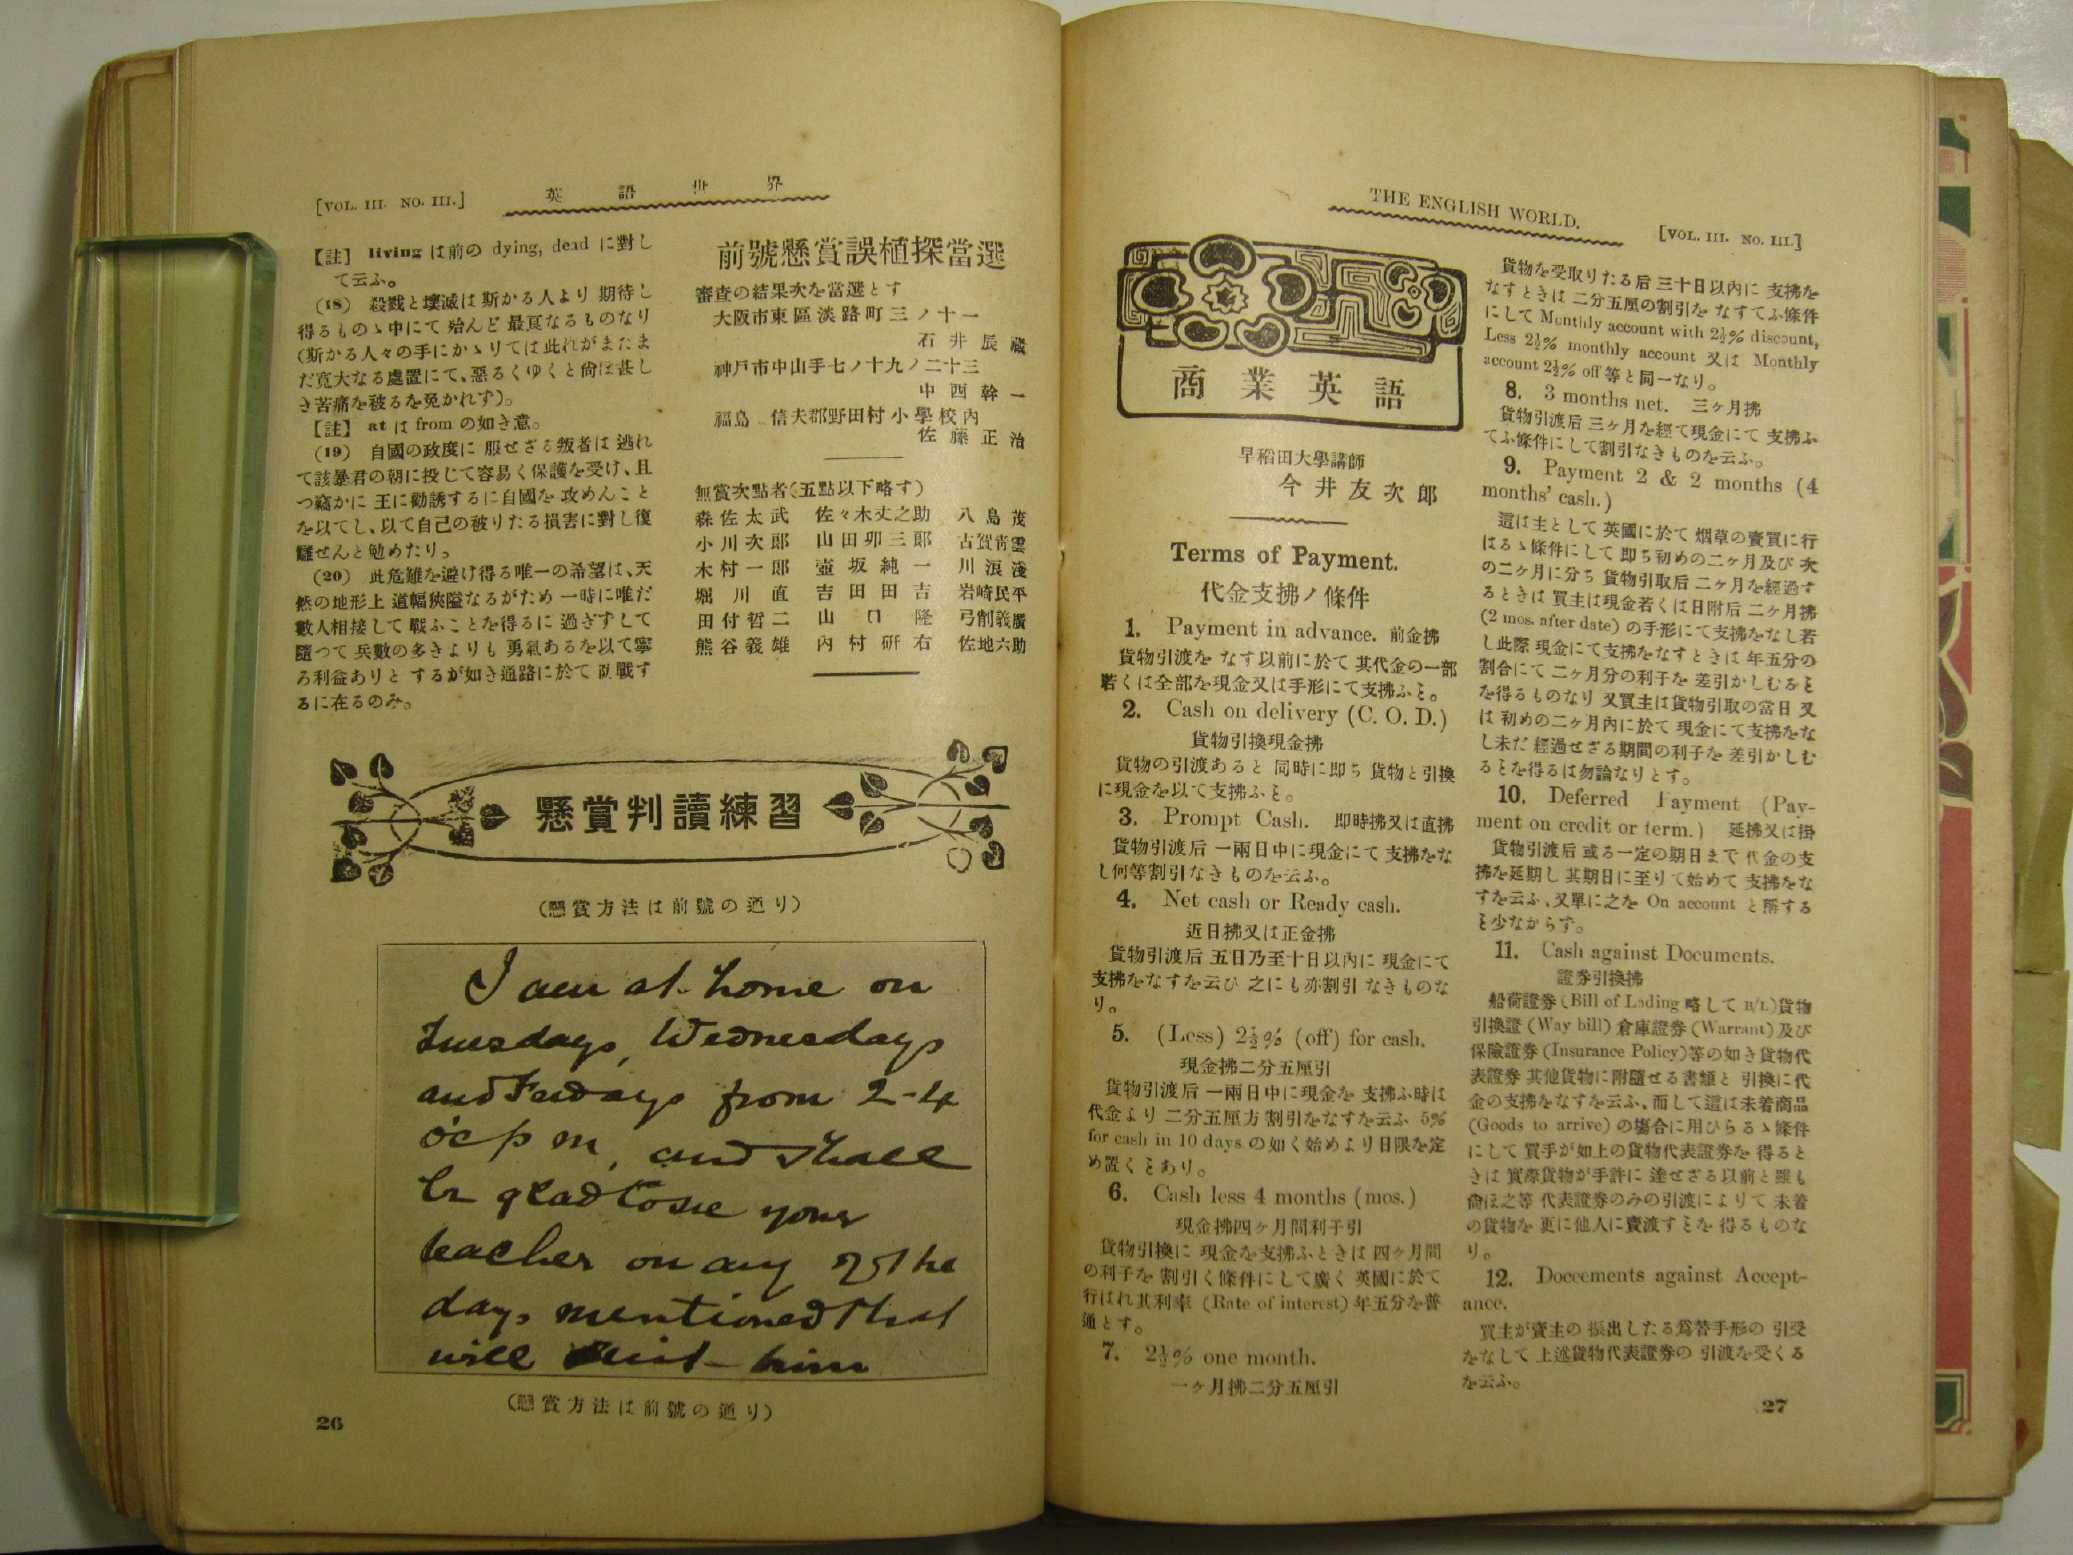 [VOL. III. NO. III.]
英語世界
【註】 living は前の dying, dead に對し
て云ふ。
(18) 殺戮と壞滅は斯かる人より期待し
得るものゝ中にて殆んど最良なるものなり
(斯かる人々の手にかゝりては此れがまだま
だ寛大なる處置にて、惡るくゆくと尙ほ甚し
き苦痛を被るを免かれず)。
【註】 at は from の如き意。
(19) 自國の政度に服せざる叛者は逃れ
て該暴君の朝に投じて容易く保護を受け、且
つ竊かに王に勸誘するに自國を攻めんこと
を以てし、以て自己の被りたる損害に對し復
讐せんと勉めたり。
(20) 此危難を避け得る唯一の希望は、天
然の地形上道幅狹隘なるがため一時に唯だ
數人相接して戰ふことを得るに過ぎずして
隨つて兵數の多きよりも勇氣あるを以て寧
ろ利益ありとするが如き通路に於て防戰す
るに在るのみ。
前號懸賞誤植探當選
審査の結果次を當選とす
大阪市東區淡路町三ノ十一
石井辰藏
神戸市中山手七ノ十九ノ二十三
中西幹一
福島 信夫郡野田村小學校內
佐藤正治
無賞次點者(五點以下略す)
森佐太武 佐々木丈之助 八島茂
小川次郎 山田卯三郎 古賀靑雲
木村一郎 壺坂純一 川浪淺
堀川直 吉田田吉 岩崎民平
田付哲二 山口隆 弓削義廣
熊谷義雄 內村研右 佐地六助
懸賞判讀練習
(懸賞方法は前號の通り)
I am at home on
Tuesdays, Wednesdays
and Fridays from 2-4
o'c p m, and shall
be glad to see your
teacher on any of the
days mentioned that
will suit him
(懸賞方法は前號の通り)
26
THE ENGLISH WORLD.
[VOL. III. NO. III.]
商業英語
早稻田大學講師
今井友次郎
Terms of Payment.
代金支拂ノ條件
1. Payment in advance. 前金拂
貨物引渡をなす以前に於て其代金の一部
若くは全部を現金又は手形にて支拂ふこと。
2. Cash on delivery (C. O. D.)
貨物引換現金拂
貨物の引渡あると同時に即ち貨物と引換
に現金を以て支拂ふこと。
3. Prompt Cash. 即時拂又は直拂
貨物引渡后一兩日中に現金にて支拂をな
し何等割引なきものを云ふ。
4. Net cash or Ready cash.
近日拂又は正金拂
貨物引渡后五日乃至十日以內に現金にて
支拂をなすを云ひ之にも亦割引なきものな
り。
5. (Less) 2½% (off) for cash.
現金拂二分五厘引
貨物引渡后一兩日中に現金を支拂ふ時は
代金より二分五厘方割引をなすを云ふ 5%
for cash in 10 days の如く始めより日限を定
め置くことあり。
6. Cash less 4 months (mos.)
現金拂四ヶ月間利子引
貨物引換に現金を支拂ふときは四ヶ月間
の利子を割引く條件にして廣く英國に於て
行はれ其利率 (Rate of interest) 年五分を普
通とす。
7. 2½% one month.
一ヶ月拂二分五厘引
貨物を受取りたる后三十日以內に支拂を
なすときは二分五厘の割引をなすてふ條件
にして Monthly account with 2½% discount,
Less 2½% monthly account 又は Monthly
account 2½% off 等と同一なり。
8. 3 months net. 三ヶ月拂
貨物引渡后三ヶ月を經て現金にて支拂ふ
てふ條件にして割引なきものを云ふ。
9. Payment 2 & 2 months (4
months' cash.)
這は主として英國に於て烟草の賣買に行
はるゝ條件にして即ち初めの二ヶ月及び次
の二ヶ月に分ち貨物引取后二ヶ月を經過す
るときは買主は現金若くは日附后二ヶ月拂
(2 mos. after date) の手形にて支拂をなし若
し此際現金にて支拂をなすときは年五分の
割合にて二ヶ月分の利子を差引かしむること
を得るものなり又買主は貨物引取の當日又
は初めの二ヶ月內に於て現金にて支拂をな
し未だ經過せざる期間の利子を差引かしむ
ることを得るは勿論なりとす。
10. Deferred Payment (Pay-
ment on credit or term.) 延拂又は掛
貨物引渡后或る一定の期日まで代金の支
拂を延期し其期日に至りて始めて支拂をな
すを云ふ、又單に之を On account と稱する
こと少なからず。
11. Cash against Documents.
證券引換拂
船荷證券 (Bill of Lading 略して B/L) 貨物
引換證 (Way bill) 倉庫證券 (Warrant) 及び
保險證券 (Insurance Policy) 等の如き貨物代
表證券其他貨物に附隨せる書類と引換に代
金の支拂をなすを云ふ、而して這は未着商品
(Goods to arrive) の塲合に用ひらるゝ條件
にして買手が如上の貨物代表證券を得ると
きは實際貨物が手許に達せざる以前と雖も
尙ほ之等代表證券のみの引渡によりて未着
の貨物を更に他人に賣渡すことを得るものな
り。
12. Doccements against Accept-
ance.
買主が賣主の振出したる爲替手形の引受
をなして上述貨物代表證券の引渡を受くる
を云ふ。
27